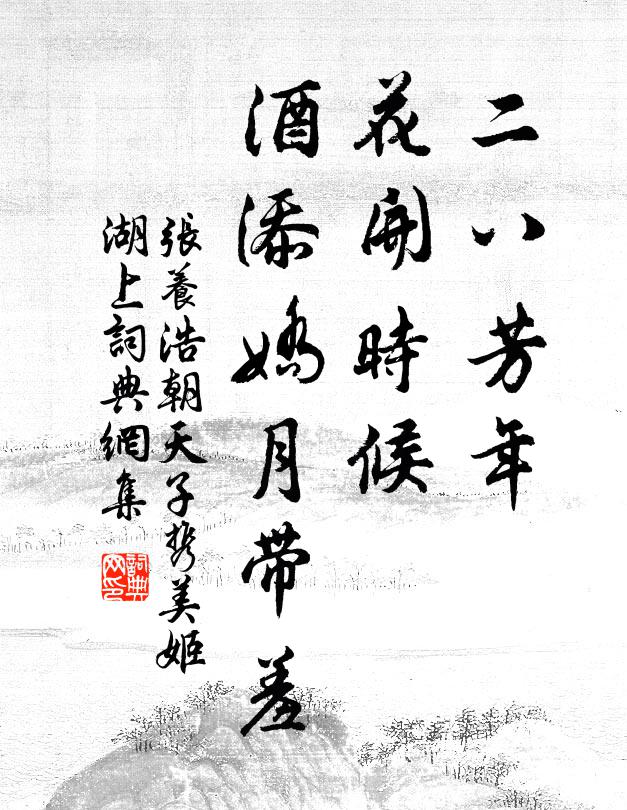 二八芳年
花開時候
酒添嬌月帶羞
張養浩朝天子携美姬
湖上詞典網集
詞典
网印